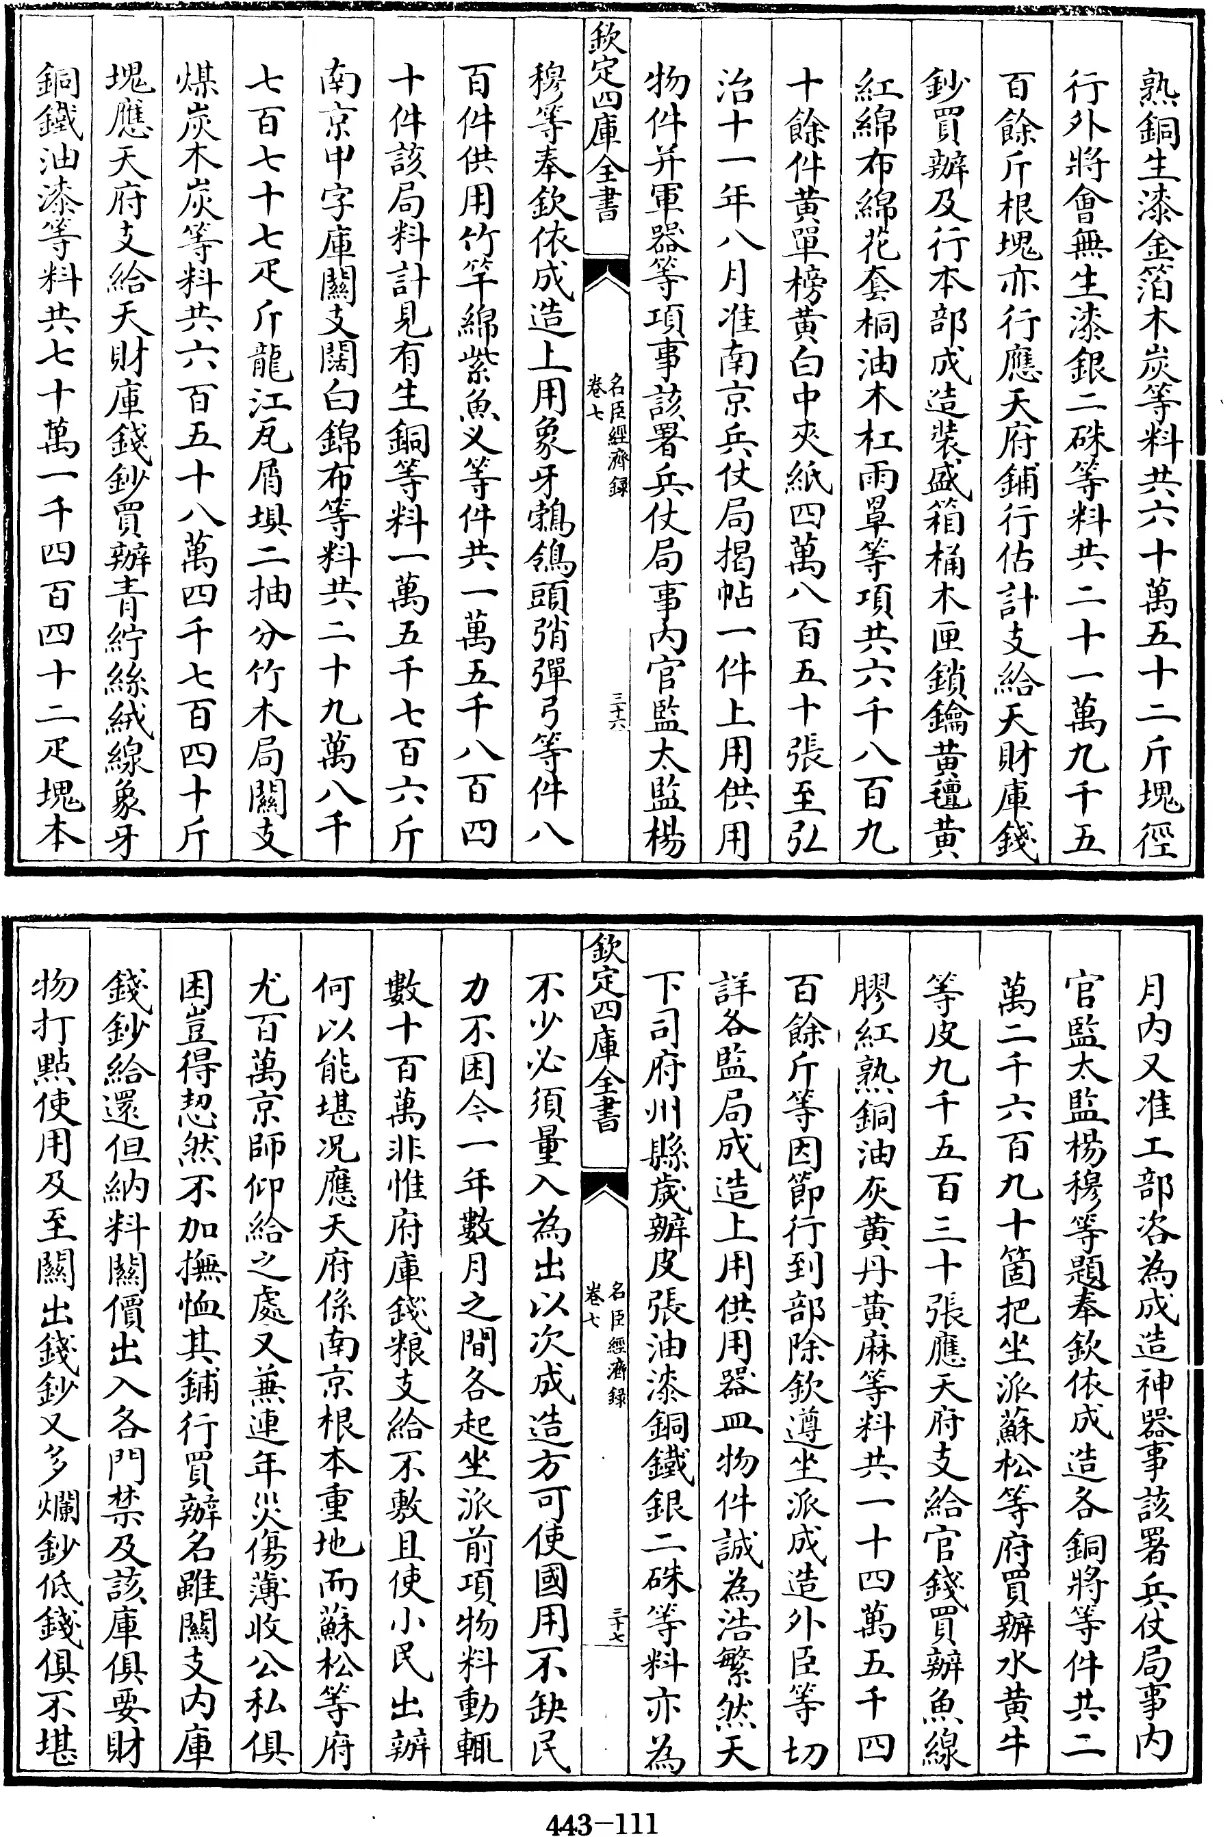 熟銅生漆金箔木炭等料共六十萬五十二斤塊徑
行外將會無生漆銀二硃等料共二十一萬九千五
百餘斤根塊亦行應天府鋪行估計支給天財庫錢
鈔買辦及行本部成造裝盛箱桶木匣鎖鑰黄氊黄
紅綿布綿花套桐油木杠雨罩等項共六千八百九
十餘件黄單榜黄白中夾紙四萬八百五十張至弘
治十一年八月准南京兵仗局揭帖一件上用供用
物件并軍器等項事該署兵仗局事内官監太監楊
欽定四庫全書
名臣經濟録
卷七
三十六
穆等奉欽依成造上用象牙鵓鴿頭弰彈弓等件八
百件供用竹竿綿紫魚义等件共一萬五千八百四
十件該局料計見有生銅等料一萬五千七百六斤
南京甲字庫關支闊白錦布等料共二十九萬八千
七百七十七疋斤龍江瓦屑埧二抽分竹木局關支
煤炭木炭等料共六百五十八萬四千七百四十斤
塊應天府支給天財庫錢鈔買辦青紵絲絨線象牙
銅鐵油漆等料共七十萬一千四百四十二疋塊本
月内又准工部咨為成造神器事該署兵仗局事内
官監太監楊穆等題奉欽依成造各銅將等件共二
萬二千六百九十箇把坐派蘇松等府買辦水黄牛
等皮九千五百三十張應天府支給官錢買辦魚線
膠紅熟銅油灰黄丹黄麻等料共一十四萬五千四
百餘斤等因節行到部除欽遵坐派成造外臣等切
詳各監局成造上用供用器皿物件誠為浩繁然天
下司府州縣歲辦皮張油漆銅鐵銀二硃等料亦為
欽定四庫全書
名臣經濟録
卷七
三十七
不少必須量入為出以次成造方可使國用不缺民
力不困今一年數月之間各起坐派前項物料動輒
數十百萬非惟府庫錢粮支給不敷且使小民出辦
何以能堪况應天府係南京根本重地而蘇松等府
尤百萬京師仰給之處又兼連年災傷薄收公私俱
困豈得恝然不加撫恤其鋪行買辦名雖關支内庫
錢鈔給還但納料關價出入各門禁及該庫俱要財
物打點使用及至關出錢鈔又多爛鈔低錢俱不堪
443-111